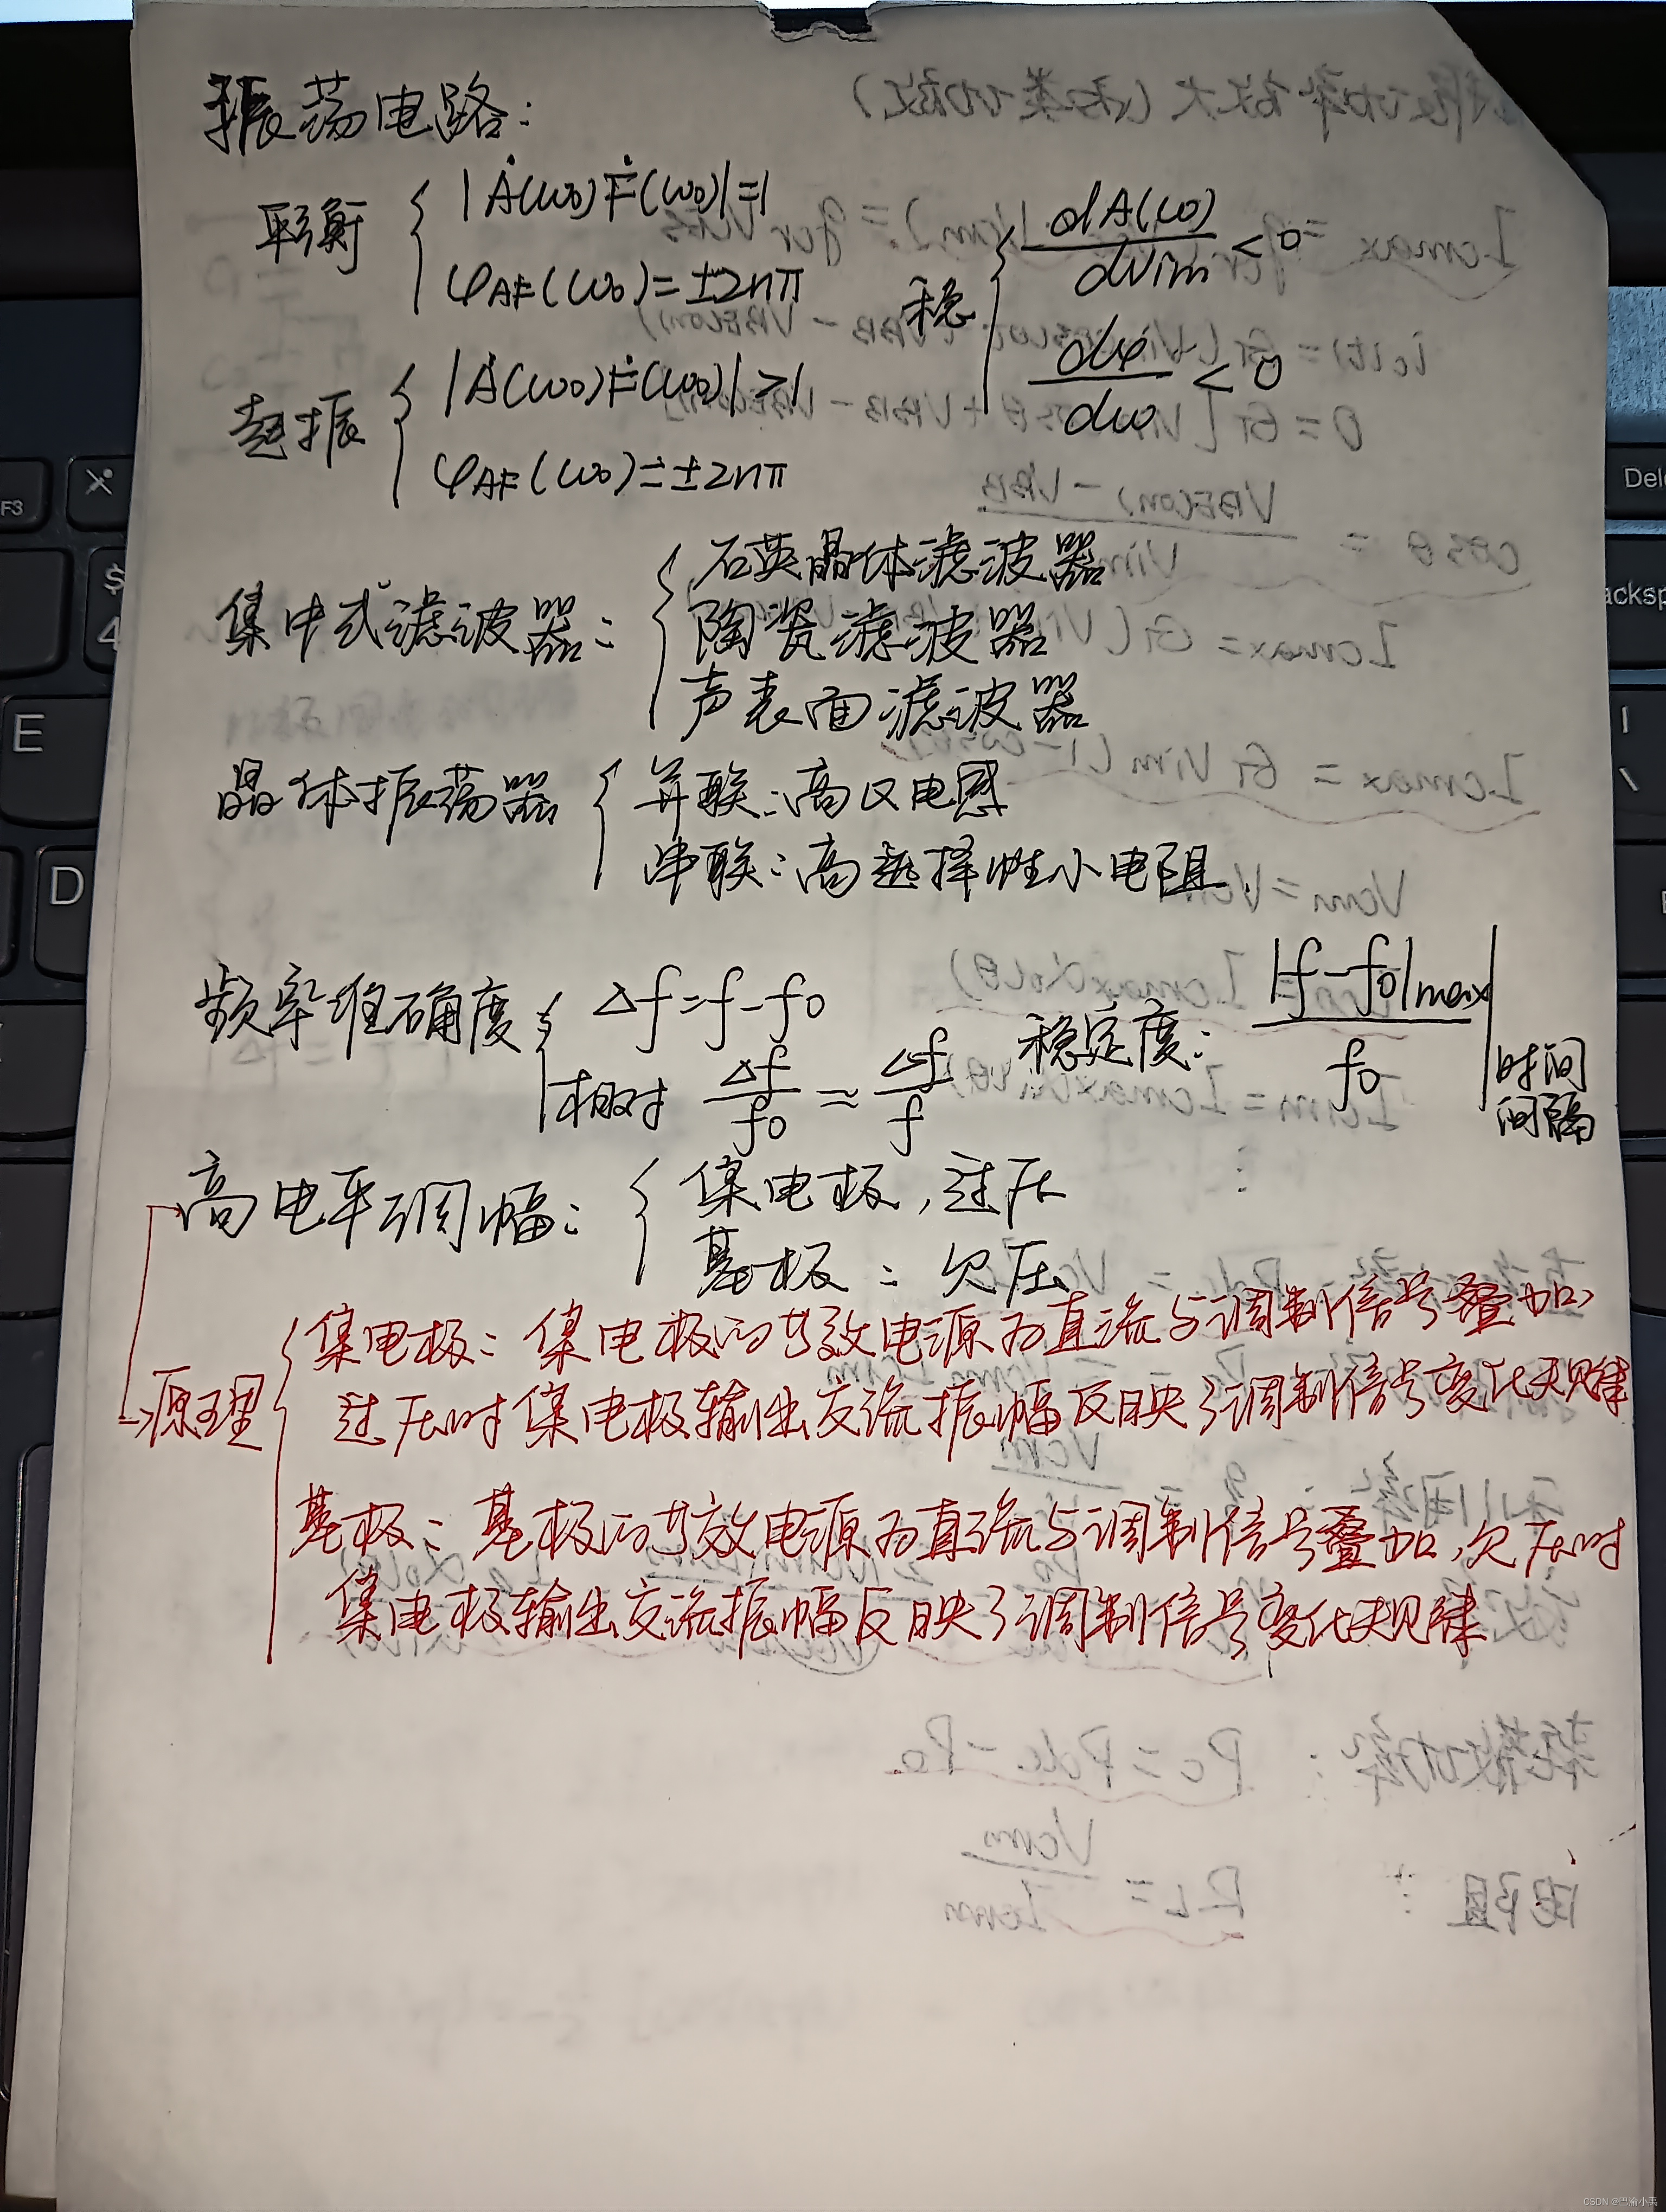 振荡电路:
平衡 { |Ȧ(ω₀)Ḟ(ω₀)|=1
φAF(ω₀)=±2nπ
稳 { dA(ω)/dVim < 0
dφ/dω < 0
起振 { |Ȧ(ω₀)Ḟ(ω₀)|>1
φAF(ω₀)=±2nπ
集中式滤波器: { 石英晶体滤波器
陶瓷滤波器
声表面滤波器
晶体振荡器 { 并联:高Q电感
串联:高选择性小电阻
频率准确度 { Δf=f-f₀
相对 Δf/f₀ ≈ Δf/f
稳定度: |f-f₀|max/f₀ |时间
间隔
高电平调幅: { 集电极,过压
基极:欠压
原理 { 集电极:集电极的等效电源为直流与调制信号叠加,
过压时集电极输出交流振幅反映了调制信号变化规律
基极:基极的等效电源为直流与调制信号叠加,欠压时
集电极输出交流振幅反映了调制信号变化规律
F3
$
4
E
D
Del
acksp
CSDN @巴渝小禹